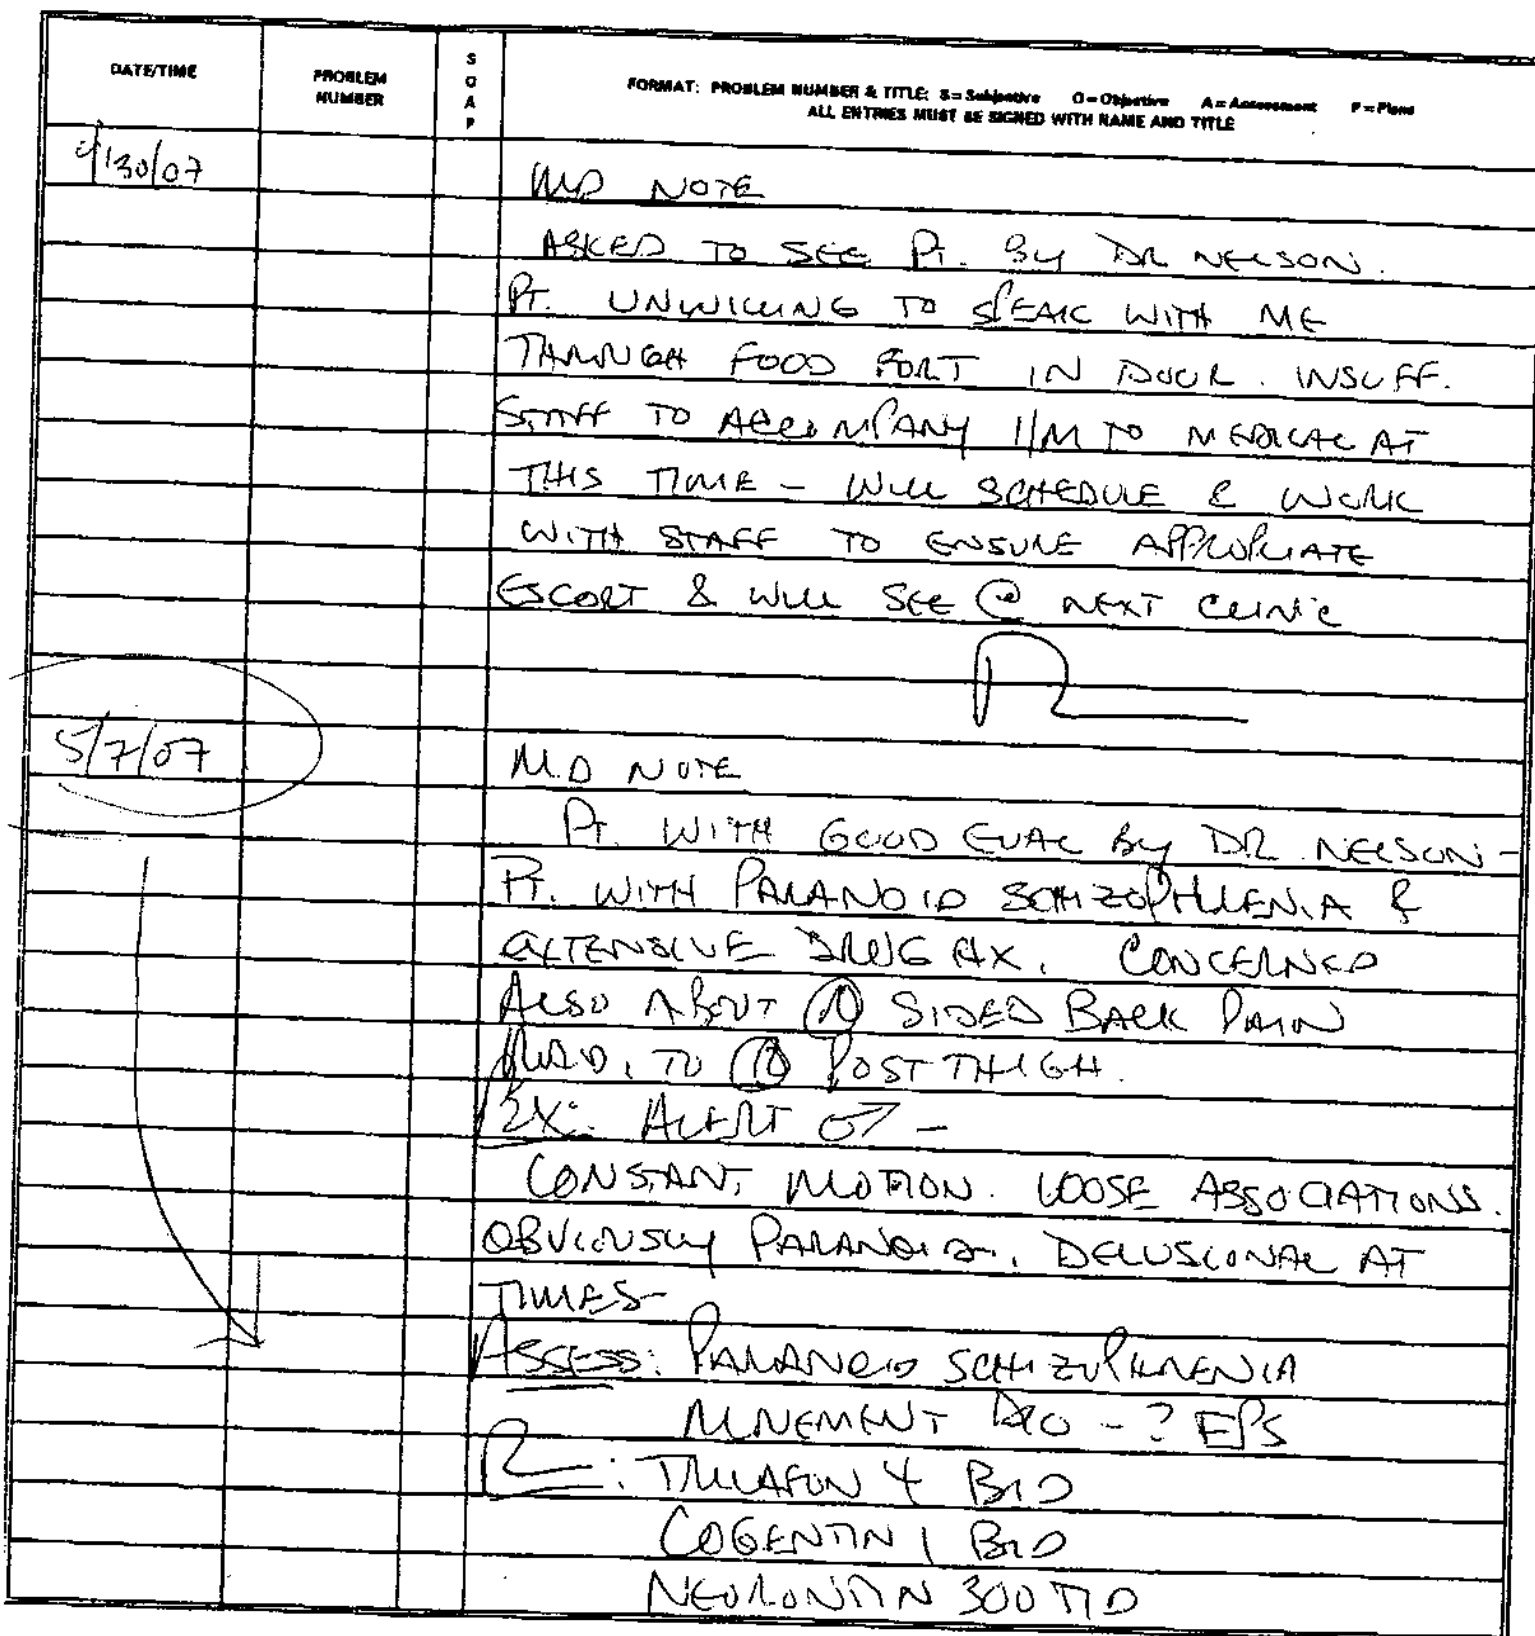 DATE/TIME
PROBLEM
NUMBER
S
O
A
P
FORMAT: PROBLEM NUMBER & TITLE: S = Subjective O = Objective A = Assessment P = Plans
ALL ENTRIES MUST BE SIGNED WITH NAME AND TITLE
4/30/07
MD NOTE
ASKED TO SEE PT. BY DR NELSON.
PT. UNWILLING TO SPEAK WITH ME
THROUGH FOOD PORT IN DOOR. INSUFF.
STAFF TO ACCOMPANY I/M TO MEDICAL AT
THIS TIME - WILL SCHEDULE & WORK
WITH STAFF TO ENSURE APPROPRIATE
ESCORT & WILL SEE @ NEXT CLINIC
5/7/07
M.D NOTE
PT. WITH GOOD EVAL BY DR. NELSON -
PT. WITH PARANOID SCHIZOPHRENIA &
EXTENSIVE DRUG HX. CONCERNED
ALSO ABOUT Ⓡ SIDED BACK PAIN
RAD. TO Ⓡ POST THIGH.
EX: ALERT
CONSTANT MOTION. LOOSE ASSOCIATIONS.
OBVIOUSLY PARANOID. DELUSIONAL AT
TIMES-
ASSESS: PARANOID SCHIZOPHRENIA
MOVEMENT D/O - ? EPS
: TRILAFON 4 BID
COGENTIN 1 BID
NEURONTIN 300 TID